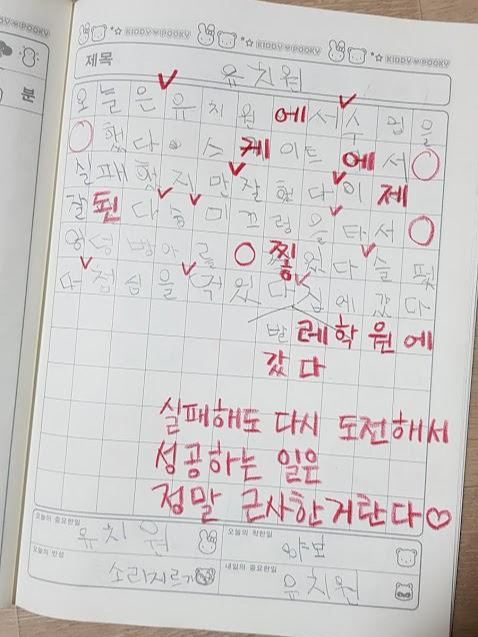 KIDDY♥POOKY KIDDY♥POOKY KIDDY♥POOKY
제목 유치원
분
오늘은 유치원에서 수업을
했다. 스케이트에서
실패했지만 잘했다 이제
잘 된다 미끄럼을 타서
엉덩방아를 찧었다 슬펐
다 점심을 먹었다 집에 갔다
발레학원에
갔다
실패해도 다시 도전해서
성공하는 일은
정말 근사한거란다♡
오늘의 중요한일 유치원
오늘의 착한일 양보
오늘의 반성 소리지르기
내일의 중요한일 유치원